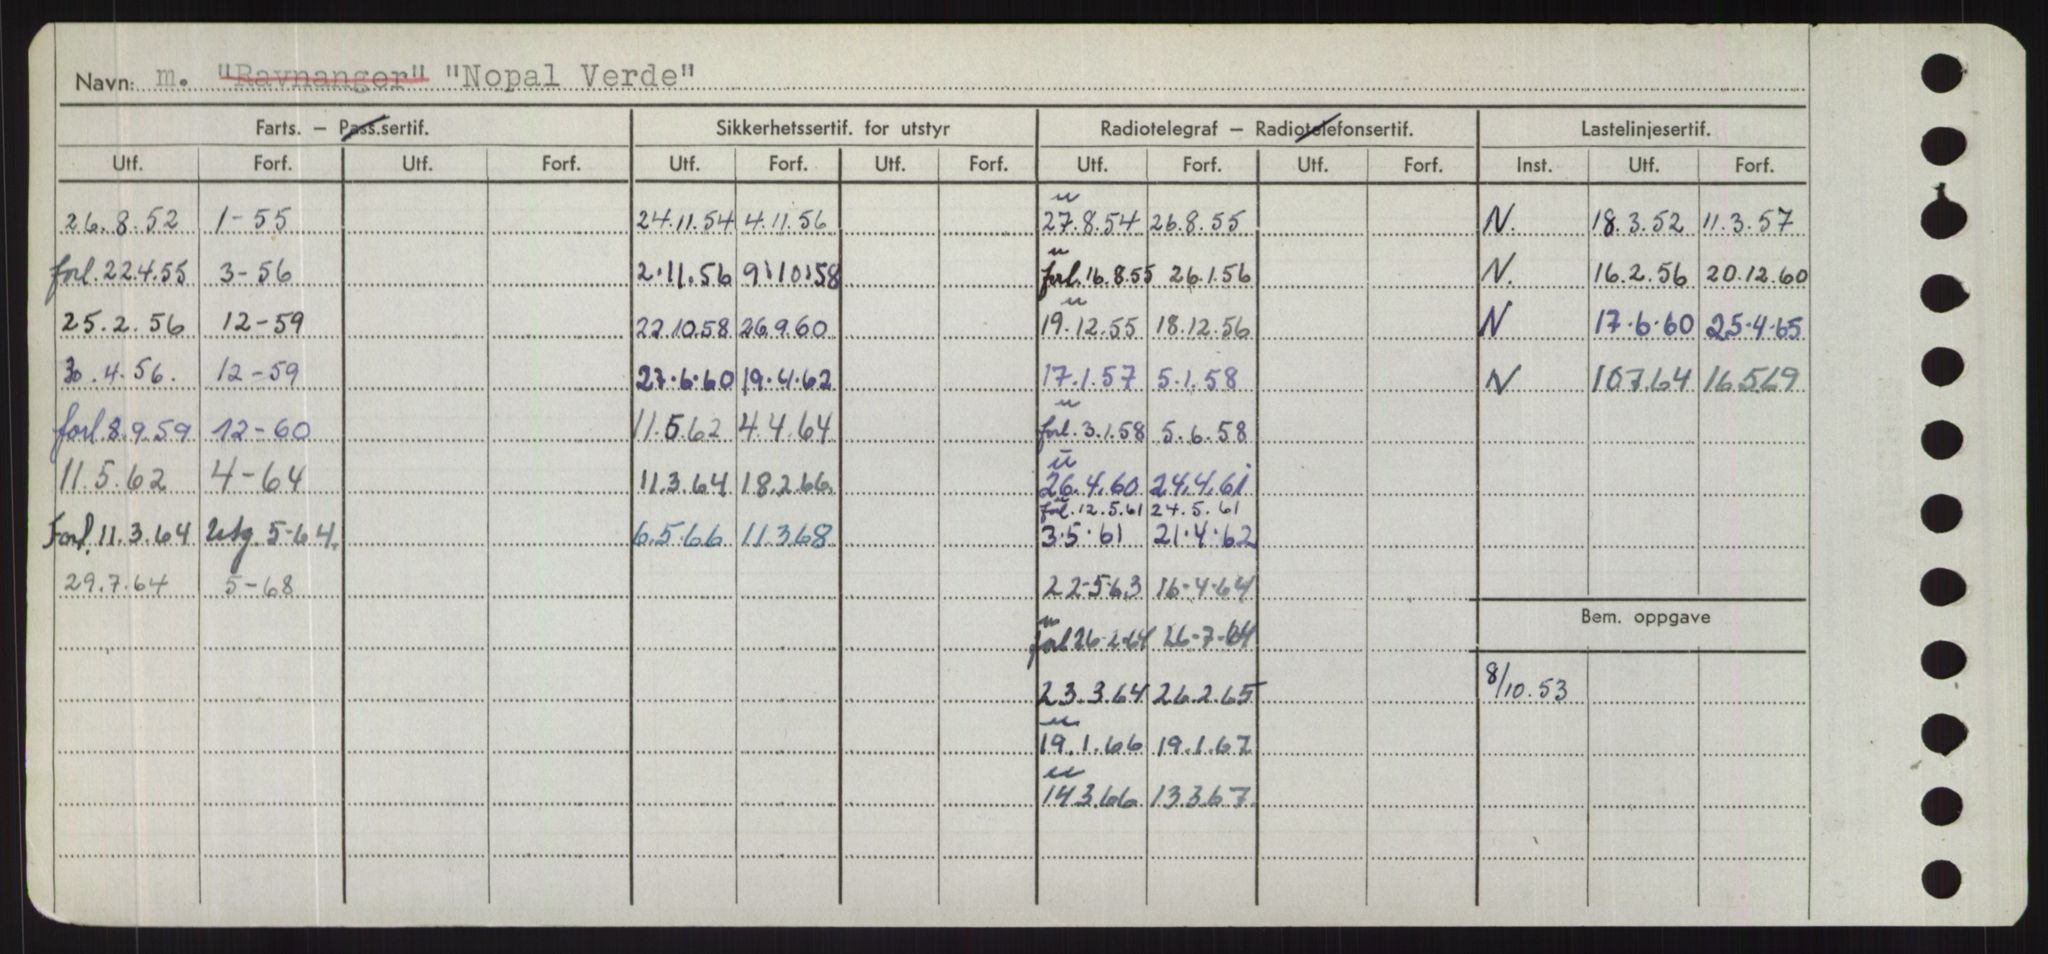 Navn: m. "Ravnanger" "Nopal Verde"
Farts. – Pass.sertif. Sikkerhetssertif. for utstyr Radiotelegraf – Radiotelefonsertif. Lastelinjesertif.
Utf. Forf. Utf. Forf. Utf. Forf. Utf. Forf. Utf. Forf. Utf. Forf. Inst. Utf. Forf.
u
26.8.52 1-55 24.11.54 4.11.56 27.8.54 26.8.55 N. 18.3.52 11.3.57
u
forl. 22.4.55 3-56 2.11.56 9.10.58 forl. 16.8.55 26.1.56 N. 16.2.56 20.12.60
u
25.2.56 12-59 22.10.58 26.9.60 19.12.55 18.12.56 N 17.6.60 25.4.65
30.4.56. 12-59 27.6.60 19.4.62 17.1.57 5.1.58 N 10.7.64 16.5.69
u
forl. 8.9.59 12-60 11.5.62 4.4.64 forl. 3.1.58 5.6.58
u
11.5.62 4-64 11.3.64 18.2.66. 26.4.60 24.4.61
forl. 12.5.61 24.5.61
Forl. 11.3.64 Utg. 5-64. 6.5.66 11.3.68 3.5.61 21.4.62
29.7.64 5-68 22-5-63 16-4-64
Bem. oppgave
u
forl 26-2-64 26-7-64
23.3.64 26.2.65 8/10.53
u
19.1.66 19.1.67
u
14.3.66 13.3.67